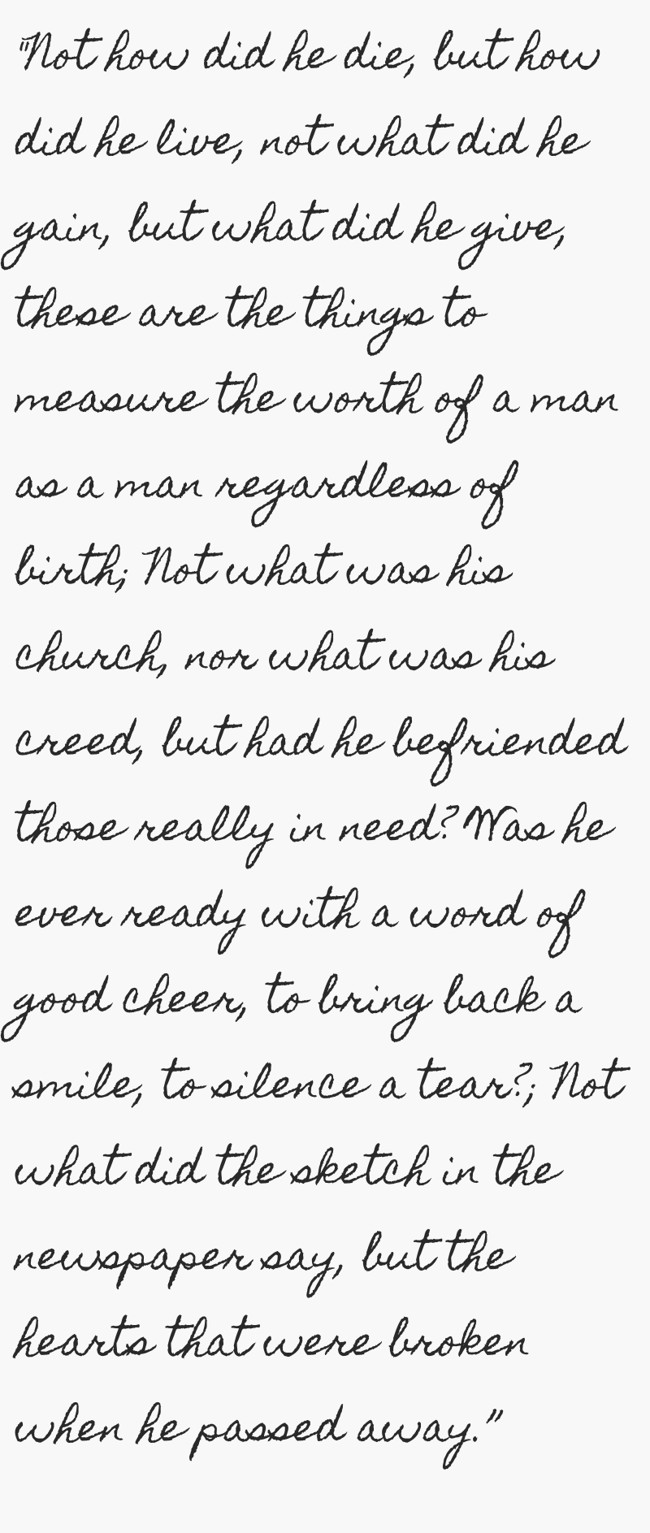 "Not how did he die, but how
did he live, not what did he
gain, but what did he give,
these are the things to
measure the worth of a man
as a man regardless of
birth; Not what was his
church, nor what was his
creed, but had he befriended
those really in need? Was he
ever ready with a word of
good cheer, to bring back a
smile, to silence a tear?; Not
what did the sketch in the
newspaper say, but the
hearts that were broken
when he passed away."